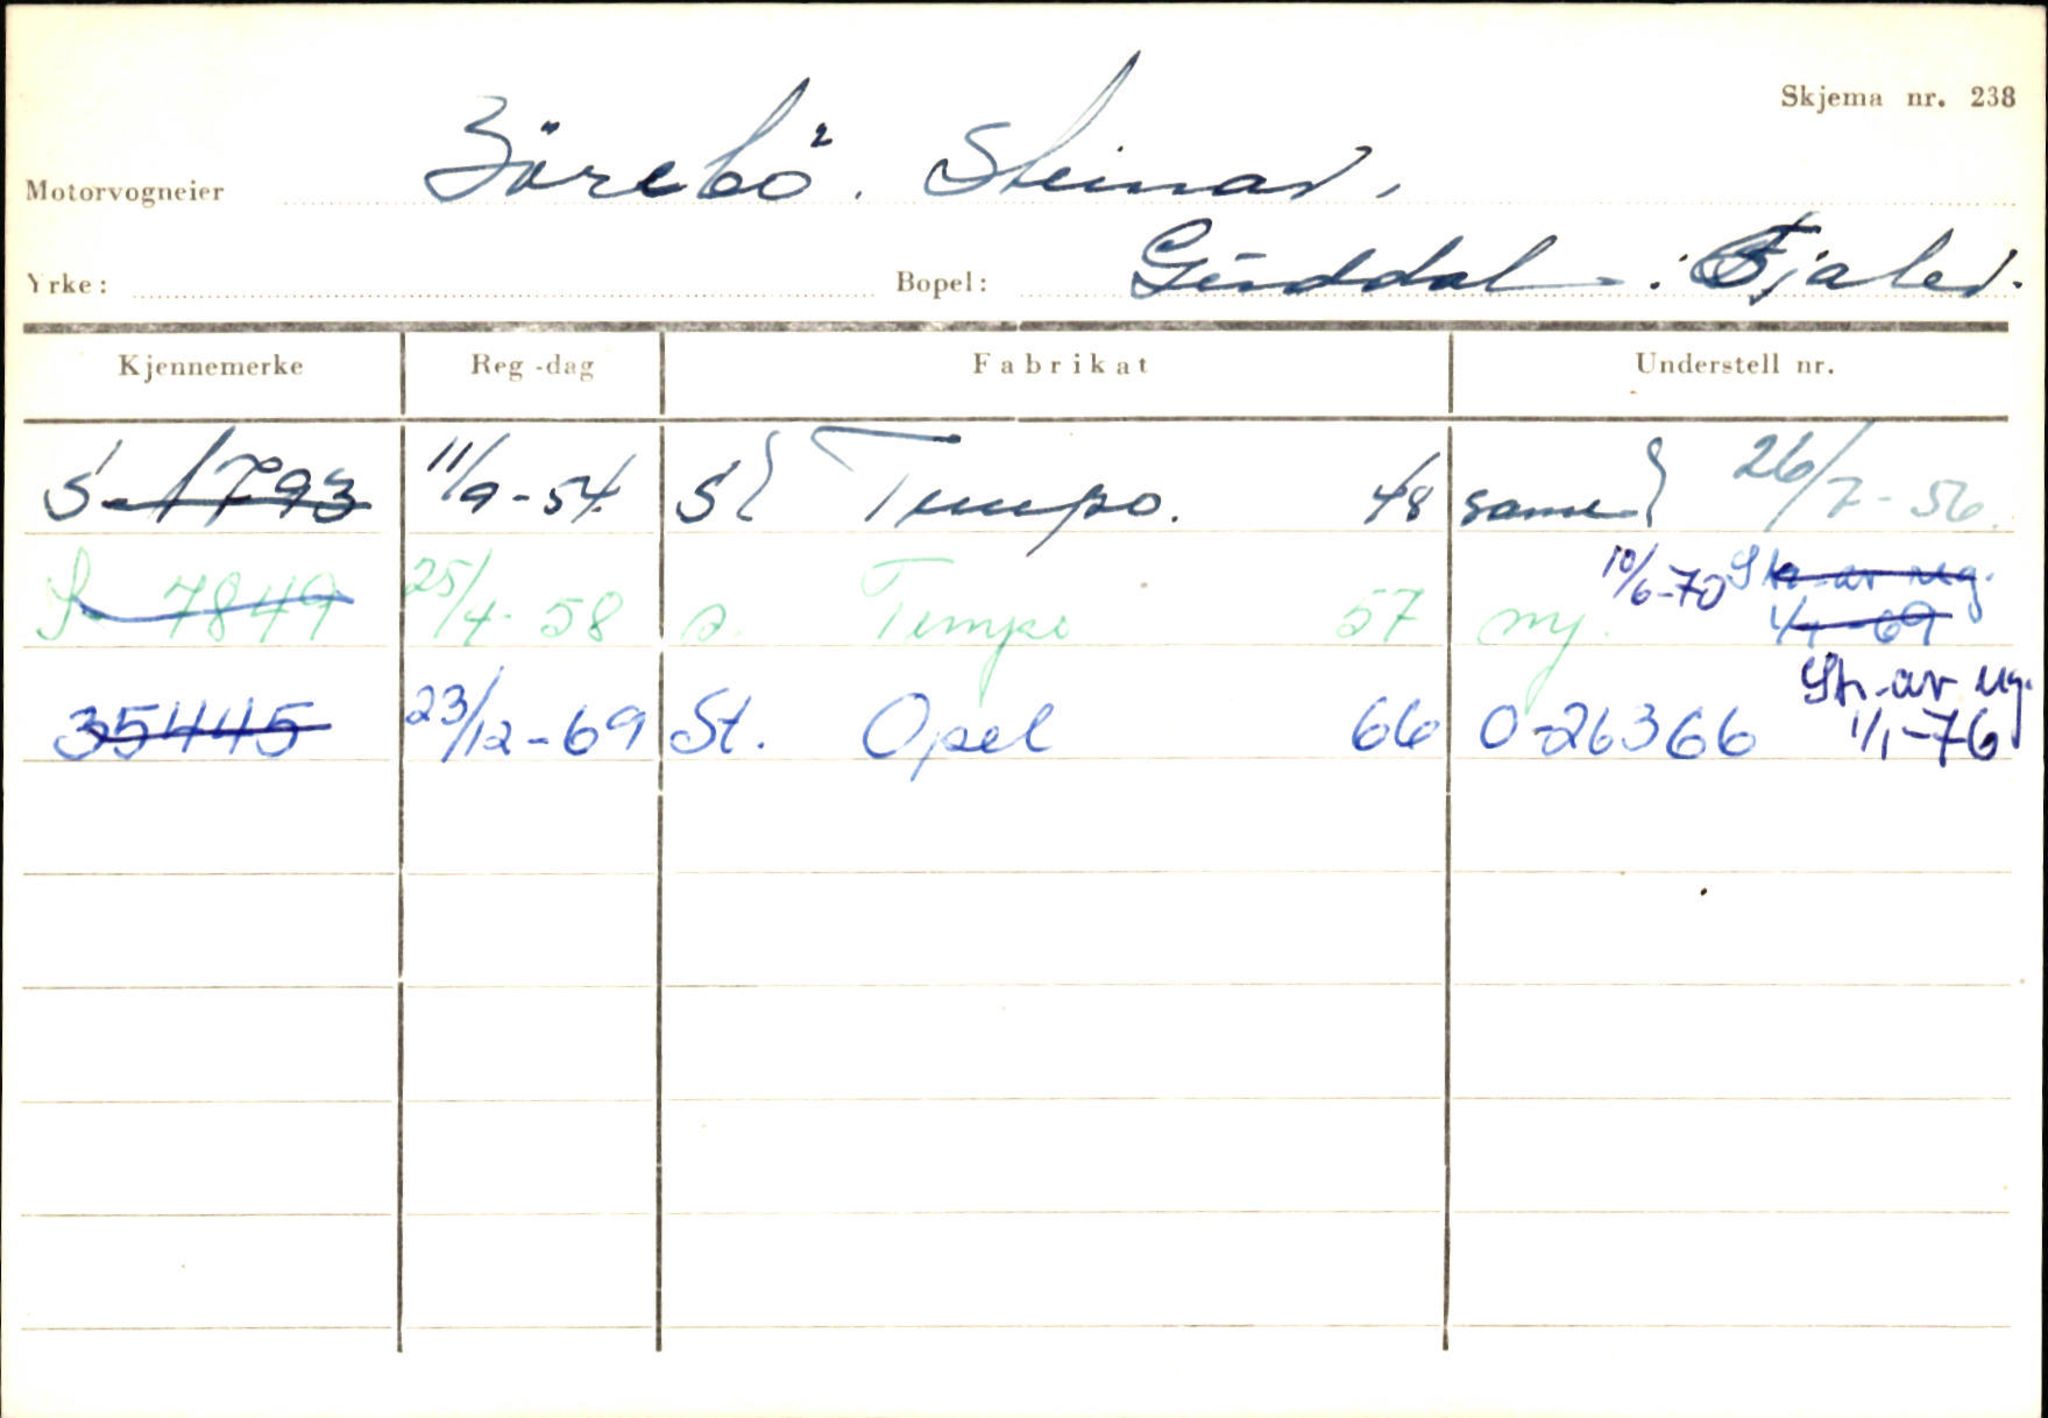 Skjema nr. 238
Motorvogneier Törebö. Steinar,
Yrke: Bopel: Guddal - Fjaler.
Kjennemerke Reg-dag Fabrikat Understell nr.
S-1793 11/9-54. S Tempo. 48 same 26/7-56.
S-7849 25/4-58 s. Tempo 57 ny. 10/6-70 Str. av reg. 1/1-69
35445 23/12-69 St. Opel 66 0-26366 Str. av reg. 1/1-76